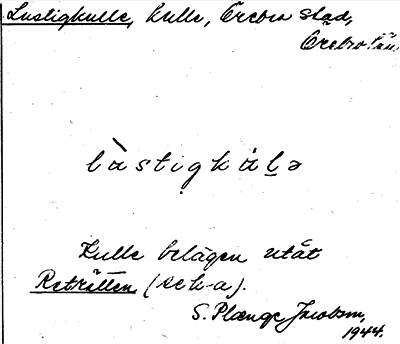 Lustigkulle, kulle, Örebro stad,
Örebro län.
lùstigkúlə
Kulle belägen utåt
Reträtten (se h-a).
S. Plænge Jacobson,
1944.